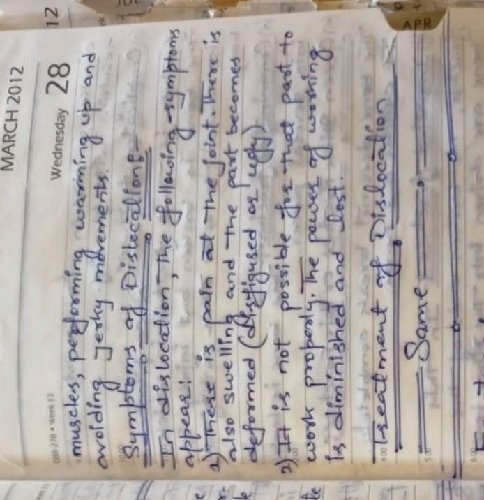 MARCH 2012
12
Wednesday 28
088-278 • Week 13
muscles, performing warming up and
avoiding jerky movements.
Symptoms of Dislocation:-
In dislocation, the following symptoms
appear:
1) There is pain at the joint. There is
also swelling and the part becomes
deformed (disfigured or ugly)
2) It is not possible for that part to
work properly. The power of working
is diminished and lost.
Treatment of Dislocation
Same
APR
4:00
5:00
6:00